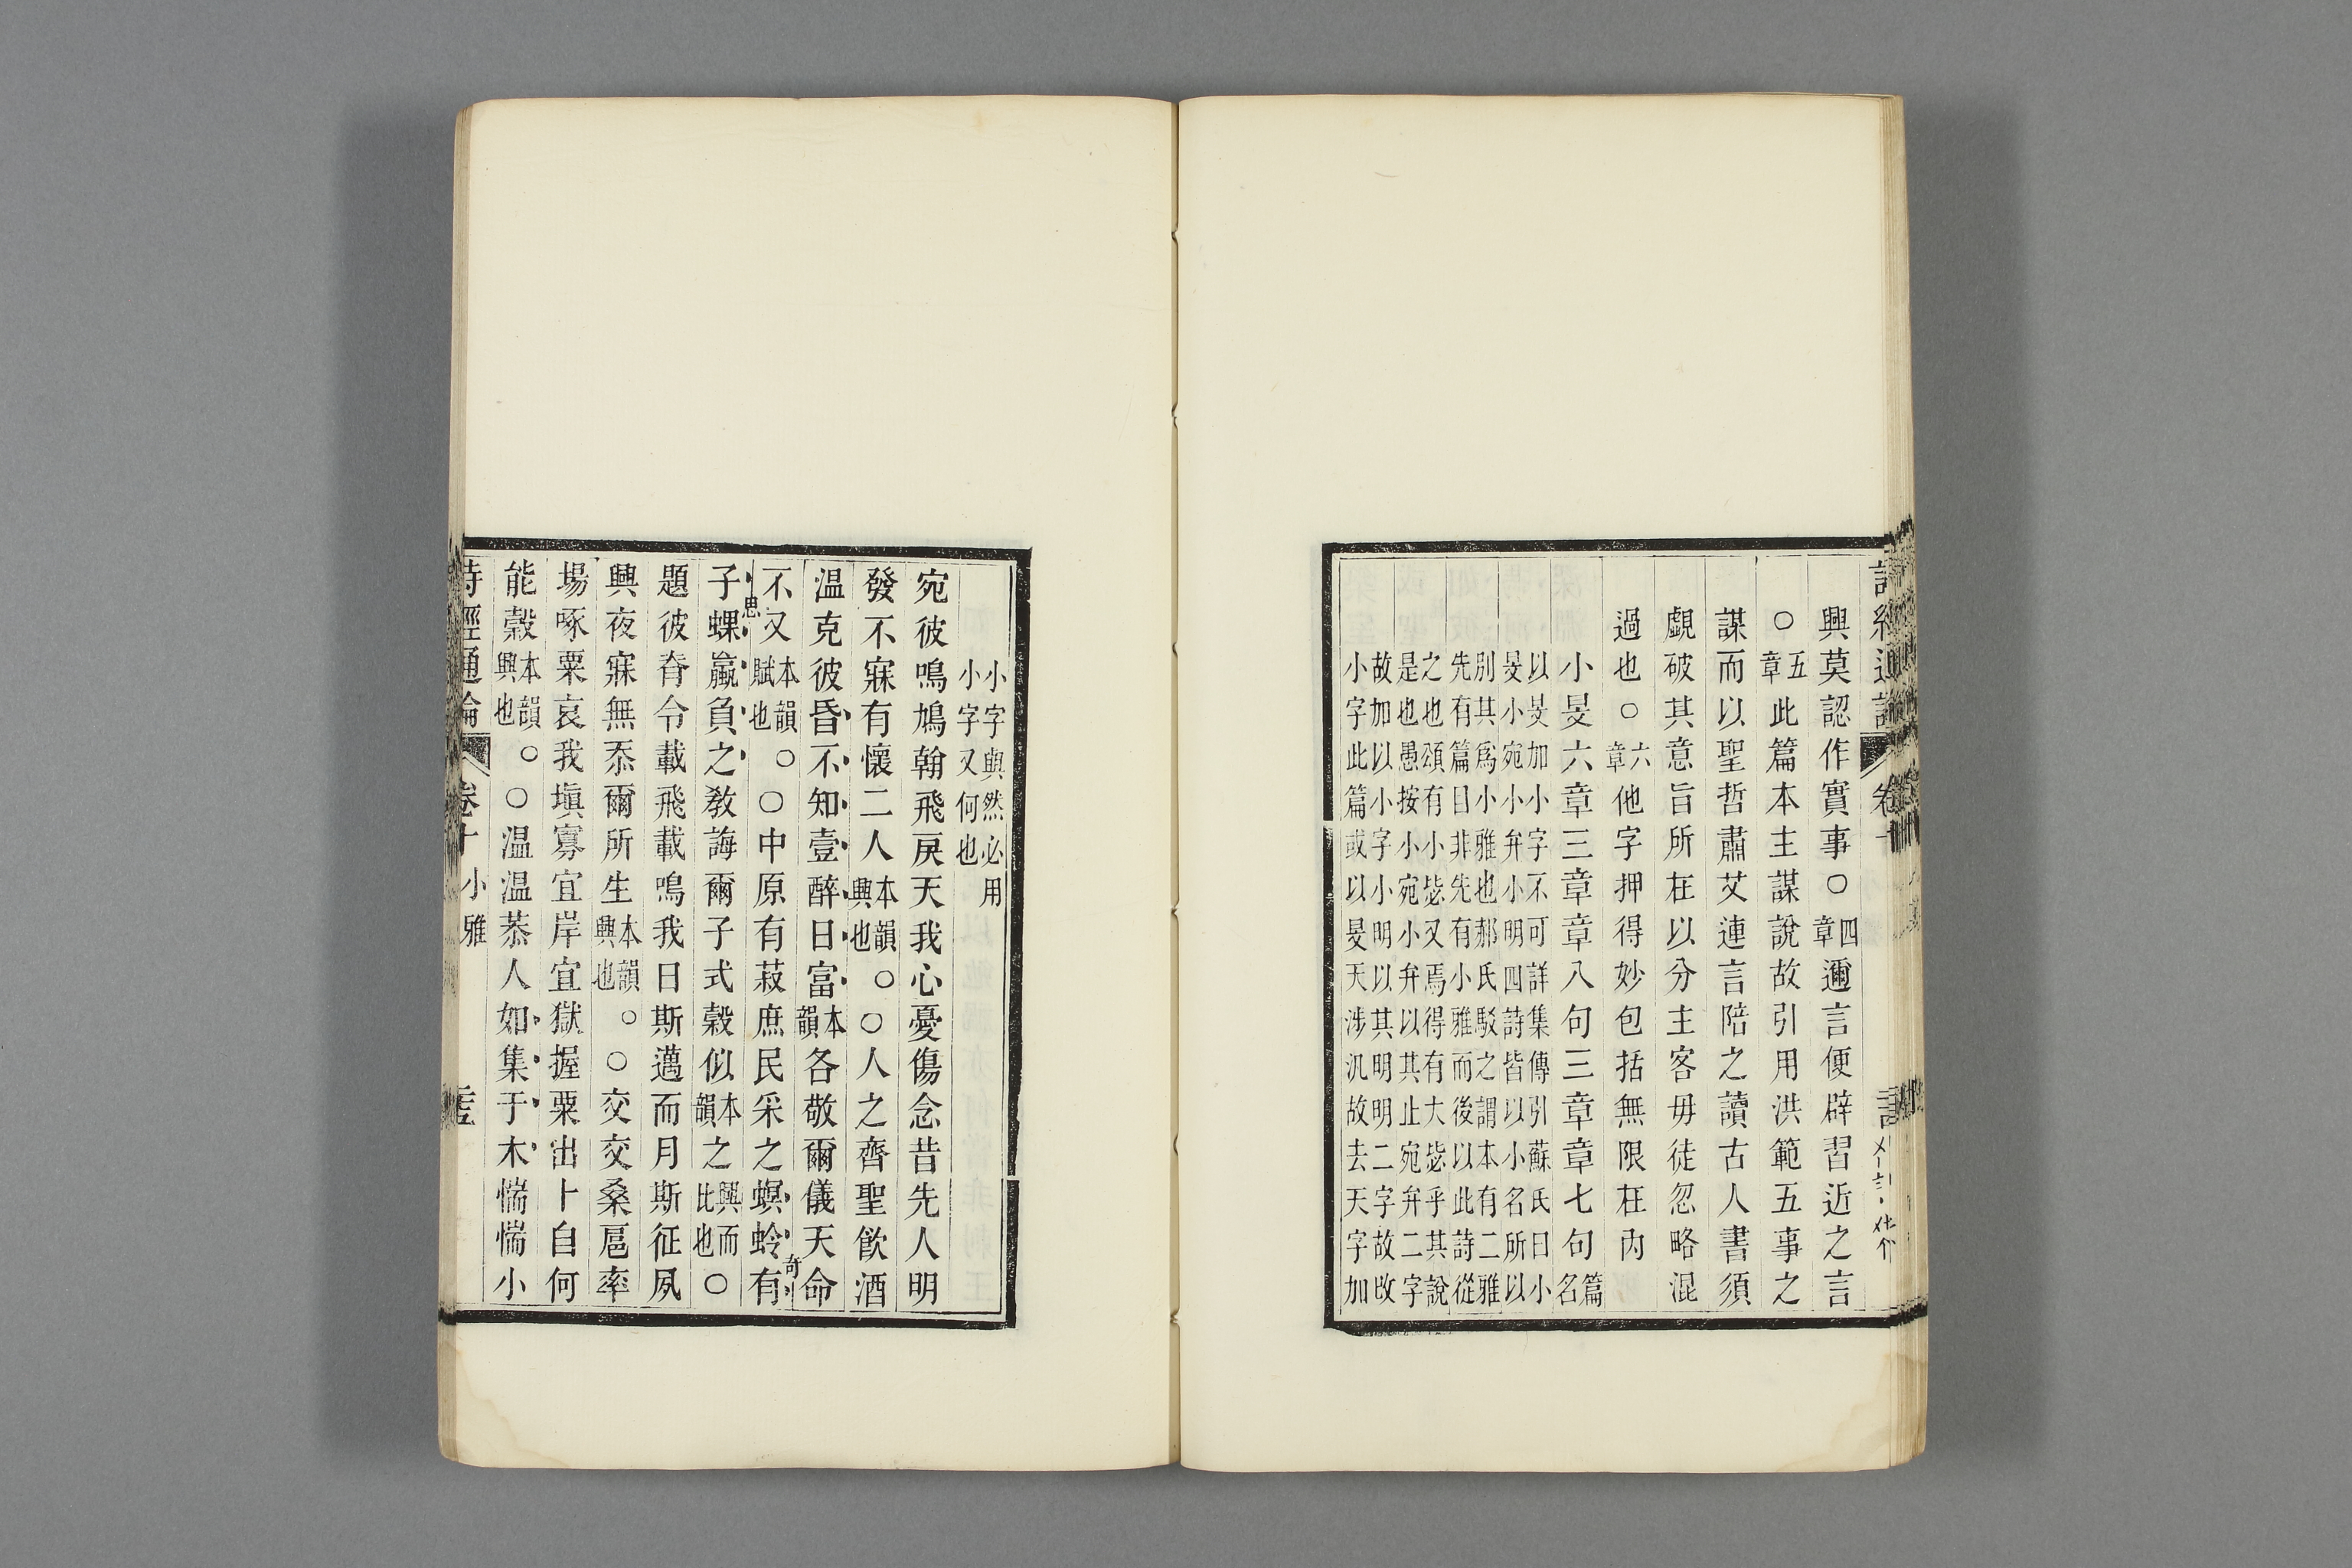 興莫認作實事○四章邇言便辟習近之言
○五章此篇本主謀說故引用洪範五事之
謀而以聖哲肅艾連言陪之讀古人書須
覷破其意旨所在以分主客毋徒忽略混
過也○六章他字押得妙包括無限在內
小旻六章三章章八句三章章七句篇名
以旻加小字不可詳集傳引蘇氏曰小
旻小宛小弁小明四詩皆以小名所以
別其爲小雅也郝氏駁之謂本有二雅
先有篇曰非先有小雅而後以此詩從
之也頌有小毖又焉得有大毖乎其說
是也愚按小宛小弁以其止宛弁二字
故加以小字小明以其明明二字故改
小字此篇或以旻天涉汎故去天字加
小字與然必用
小字又何也
宛彼鳴鳩翰飛戾天我心憂傷念昔先人明
發不寐有懷二人本韻興也。○人之齊聖飮酒
温克彼昏不知壹醉日富本韻各敬爾儀天命
不又本韻賦也。○中原有菽庶民采之螟蛉有
奇
子蜾蠃負之教誨爾子式穀似本韻之興而比也○
思
題彼脊令載飛載鳴我日斯邁而月斯征夙
興夜寐無忝爾所生本韻興也。○交交桑扈率
場啄粟哀我塡寡宜岸宜獄握粟出卜自何
能穀本韻興也。○温温恭人如集于木惴惴小
詩經通論 卷十 小雅